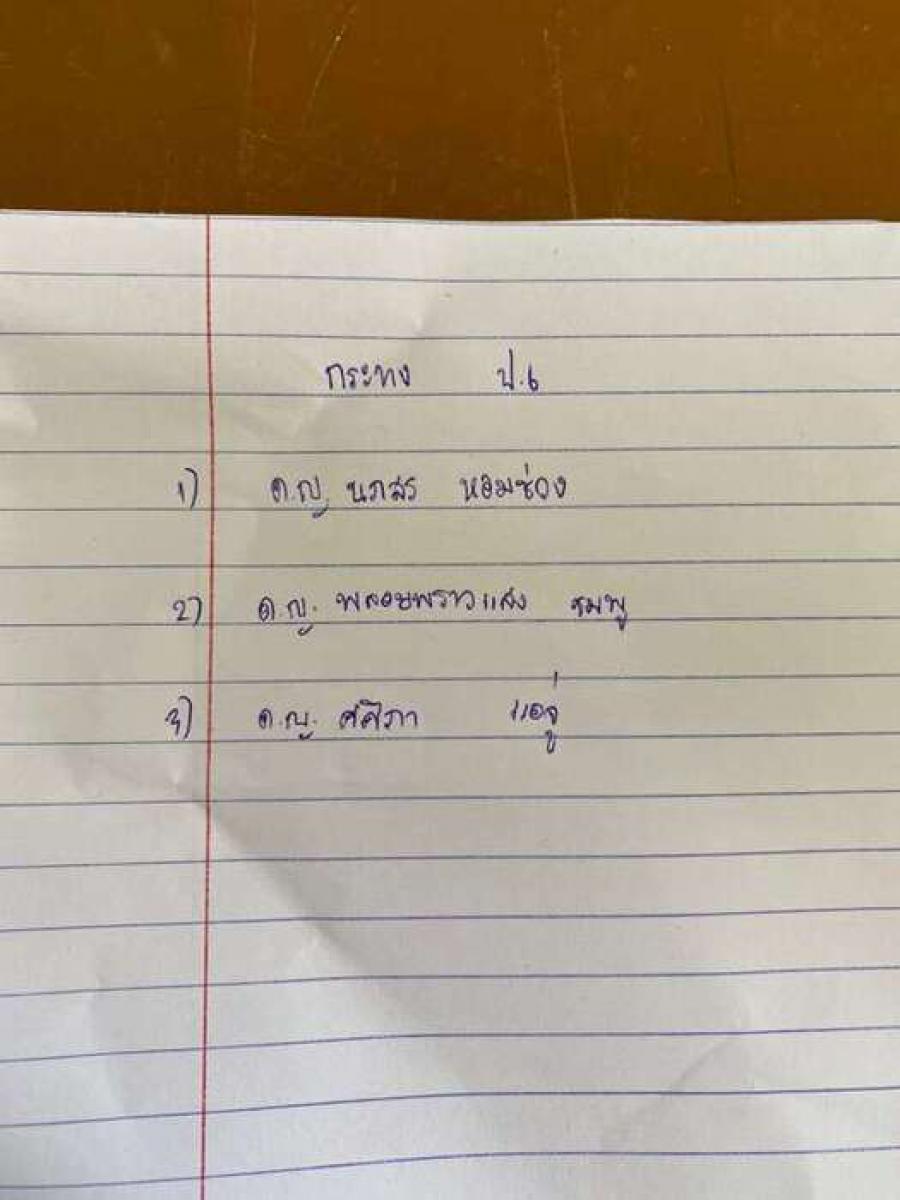 กระทง ป.6
1) ด.ญ. นภสร หอมช่วง
2) ด.ญ. พลอยพราวแสง ชมพู
3) ด.ญ. ศศิภา แอจู่